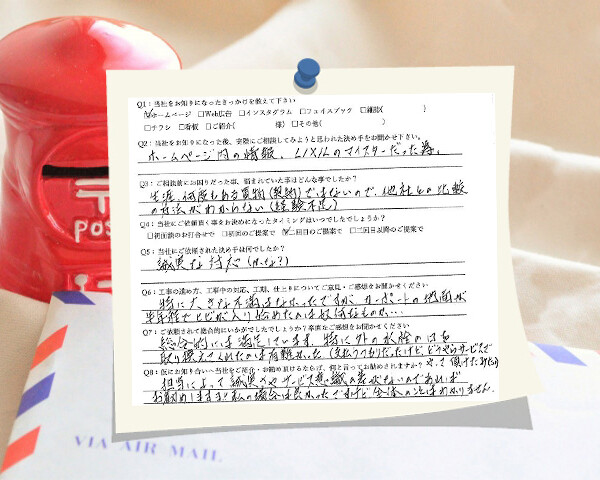 〒
POS
Q1：当社をお知りになったきっかけを教えて下さい
☑ホームページ □Web広告 □インスタグラム □フェイスブック □雑誌( )
□チラシ □看板 □ご紹介( 様) □その他( )
Q2：当社をお知りになった後、実際にご相談してみようと思われた決め手をお聞かせ下さい。
ホームページ内の情報、LIXILのマイスターだった為。
Q3：ご相談前にお困りだった事、悩まれていた事はどんな事でしたか？
生涯、何度もある買物(契約)ではないので、他社との比較
の方法がわからない(経験不足)
Q4：当社にご依頼頂く事をお決めになったタイミングはいつでしたでしょうか？
□初回面談のお打合せで □初回のご提案で ☑二回目のご提案で □二回目以降のご提案で
Q5：当社にご依頼された決め手は何でしたか？
誠実な行だ(かな？)
Q6：工事の進め方、工事中の対応、工期、仕上りについてご意見・ご感想をお聞かせください
特に大きな不満はなかったですが、カーポートの地面が
半年程でヒビが入り始めたのは致何なものか…
Q7：ご依頼されて総合的にいかがでしたでしょうか？率直なご感想をお聞かせください
総合的には満足しています。特に外の水栓のはちを
取り換えてくれたのは有難かった(支払うつもりだったけど、どうやらサービスで
やって頂けた为)
Q8：仮にお知り合いへ当社をご紹介・お勧め頂けるならば、何と言ってお勧めされますか？
担当によって誠実さやサービス意識の差がないのであれば
お勧めしますが！私の場合は良かったですけど全体のことはわかりません。
VIA AIR MAIL